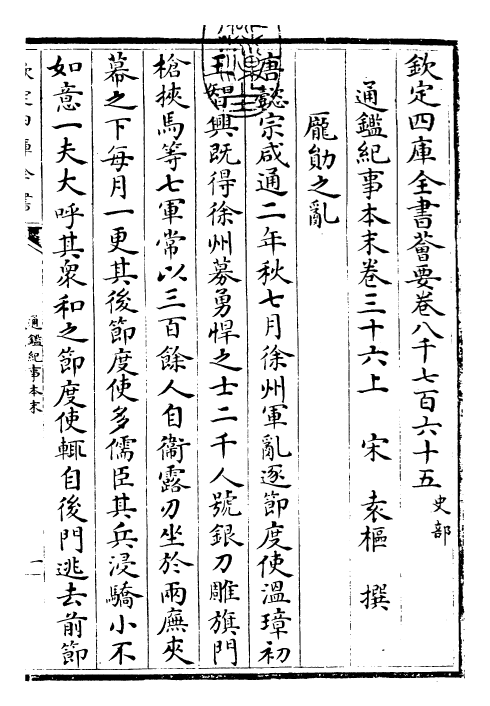 欽定四庫全書薈要卷八千七百六十五 史部
通鑑紀事本末卷三十六上 宋 袁樞 撰
龎勛之亂
唐懿宗咸通二年秋七月徐州軍亂逐節度使溫璋初
王智興既得徐州募勇悍之士二千人號銀刀雕旗門
槍挾馬等七軍常以三百餘人自衞露刃坐於兩廡夾
幕之下每月一更其後節度使多儒臣其兵浸驕小不
如意一夫大呼其衆和之節度使輒自後門逃去前節
欽定四庫全書
通鑑紀事本末
一